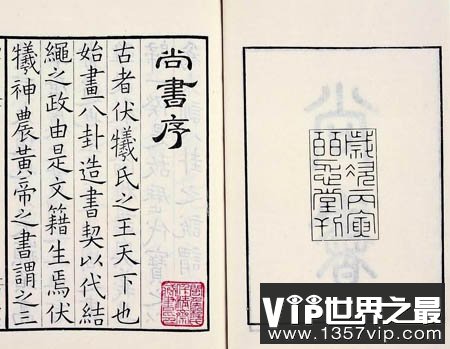 歲次丙寅
皕忍堂刊
尚書序
古者伏犧氏之王天下也
始畫八卦造書契以代結
繩之政由是文籍生焉伏
犧神農黃帝之書謂之三
VIP世界之最
www.1357vip.com